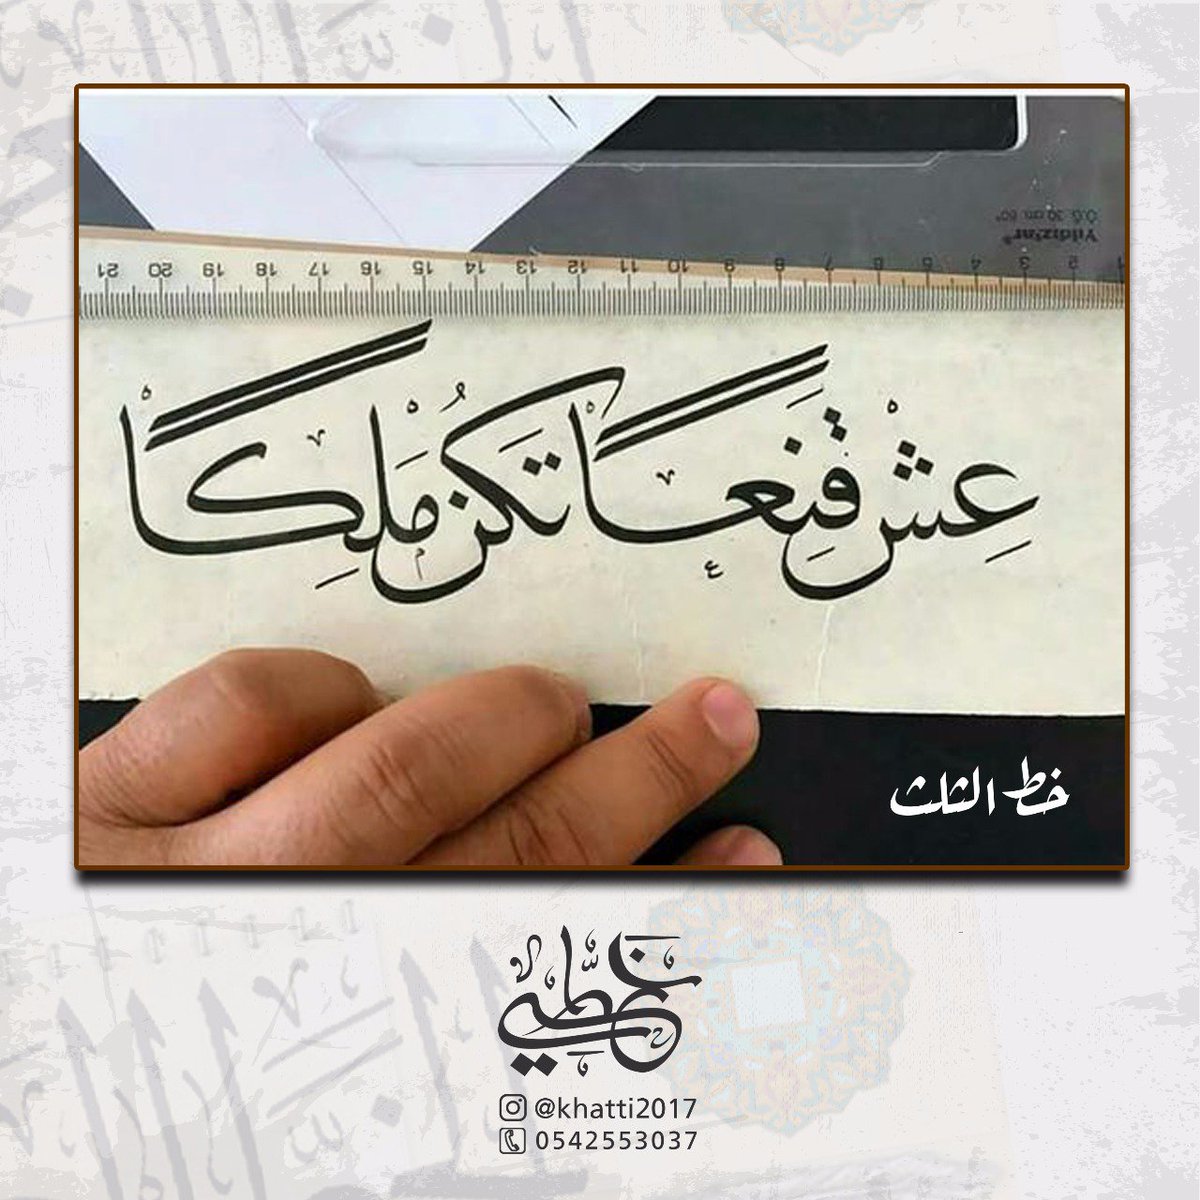 Yıldız/ar®
O.G. 30 cm 60°
21 20 19 18 17 16 15 14 13 12 11 10 9 8 7 6 5 4 3 2 1
عِشْ قَنِعًا تَكُنْ مَلِكًا
خط الثلث
خطي
@khatti2017
0542553037